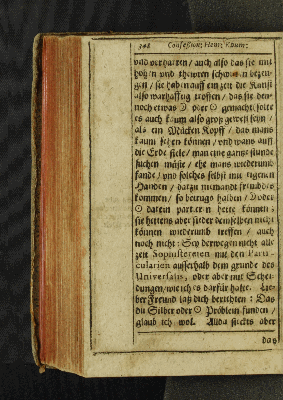 348 Confessum; Henr; Kuum:
und verharren / auch also das sie mit
hohen und thewren schweren bezeu-
gen / sie haben auff ein zeit die Kunst
also warhafftig troffen / das sie den-
noch etwas ☽ oder ☉ gemacht, solte
es auch kaum also groß gewest sein /
als ein Mücken Kopff / das mans
kaum sehen können / und wans auff
die Erde fiele / man eine gantze stunde
suchen müste / ehe mans wiederumb
fande / und solches selbst mit eigenen
Handen / darzu niemandt frembdes
kommen / so betrugs halben / ☽ oder
☉ darein parteren hette können;
sie hettens aber sieder demselben nicht
können wiederumb treffen / auch
noch nicht: Sey derwegen nicht alle
zeit Sophistereien mit den Parti-
cularien ausserhalb dem grunde des
Universalis, oder aber mit Schei-
dungen / wie ich es darfür halte. Lie-
ber Freund laß dich berichten: Das
du Silber oder ☉ Problein funden /
glaub ich wol. Allda steckts aber
das